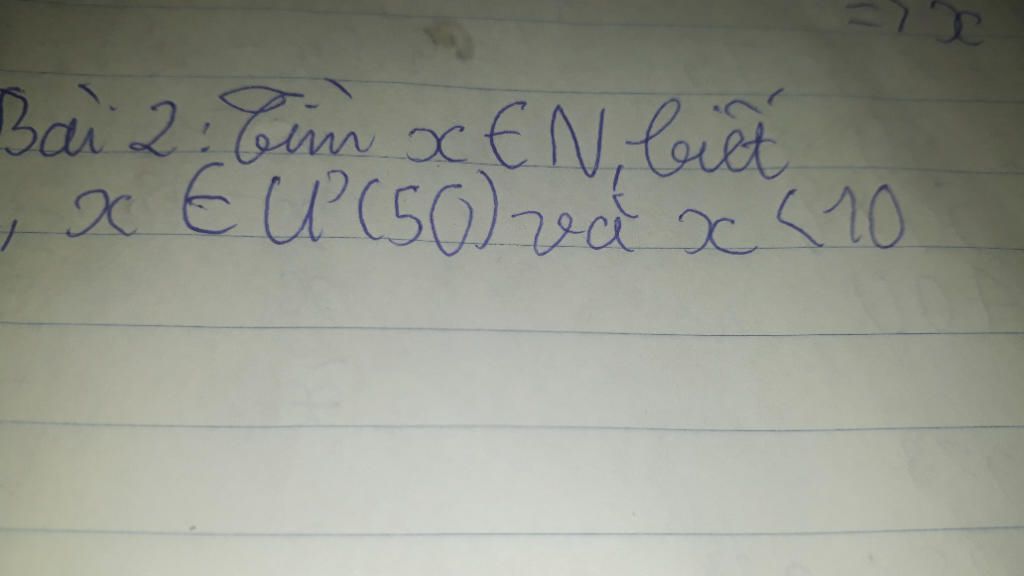 => x
Bài 2: Tìm x ∈ N, biết
, x ∈ Ư(50) và x < 10